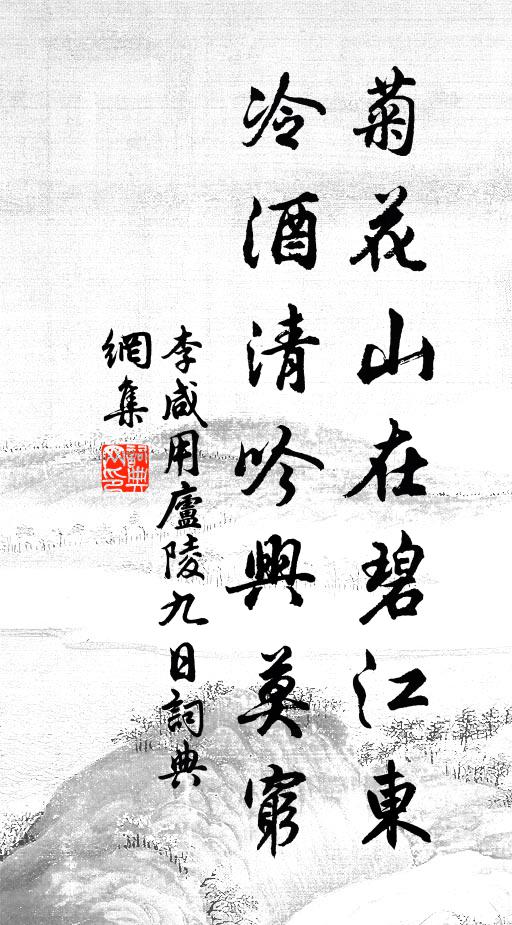 菊花山在碧江東
冷酒清吟興莫窮
李咸用廬陵九日詞典
網集
詞典
网印